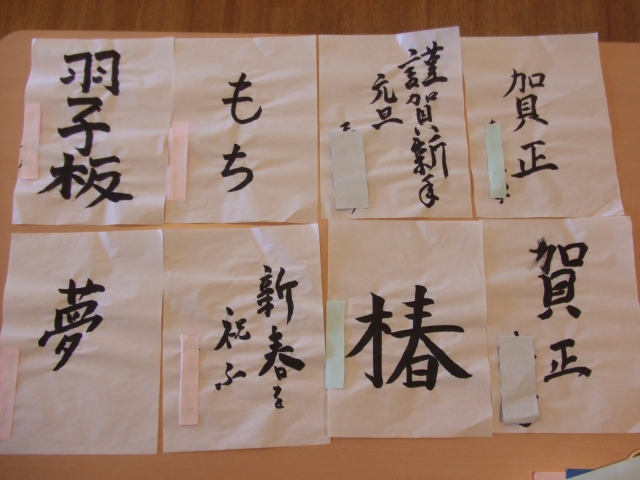 羽子板
もち
謹賀新年
元旦
賀正
夢
新春を
祝ふ
椿
賀正